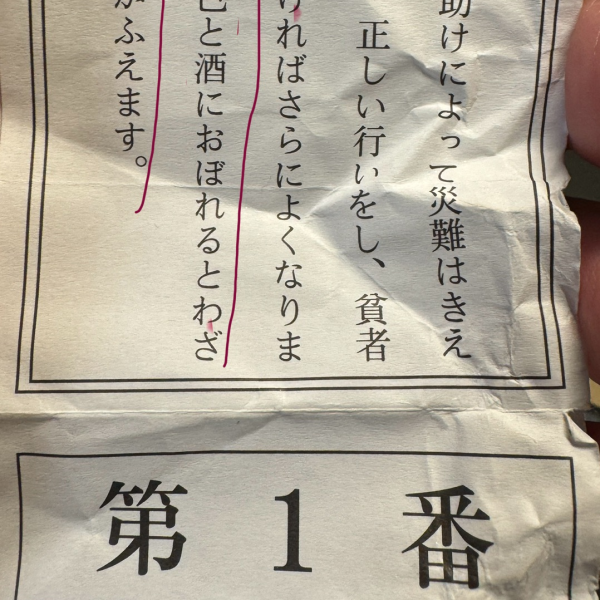 助けによって災難はきえ
正しい行いをし、貧者
ければさらによくなりま
色と酒におぼれるとわざ
がふえます。
第1番